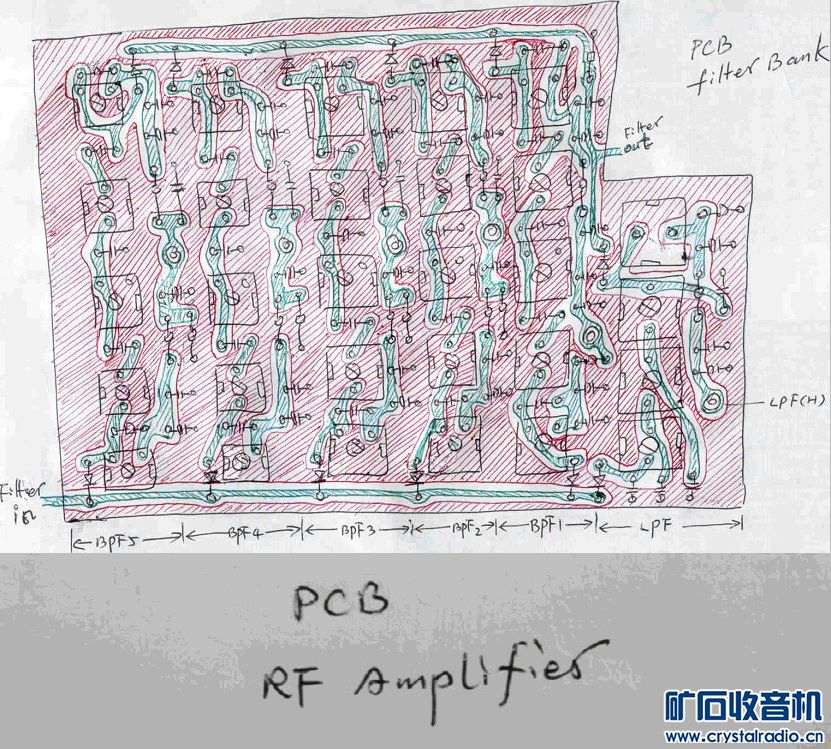 PCB
filter Bank
Filter
out
LPF(H)
Filter
in
BPF5 BPF4 BPF3 BPF2 BPF1 LPF
PCB
RF Amplifier
矿石收音机
www.crystalradio.cn